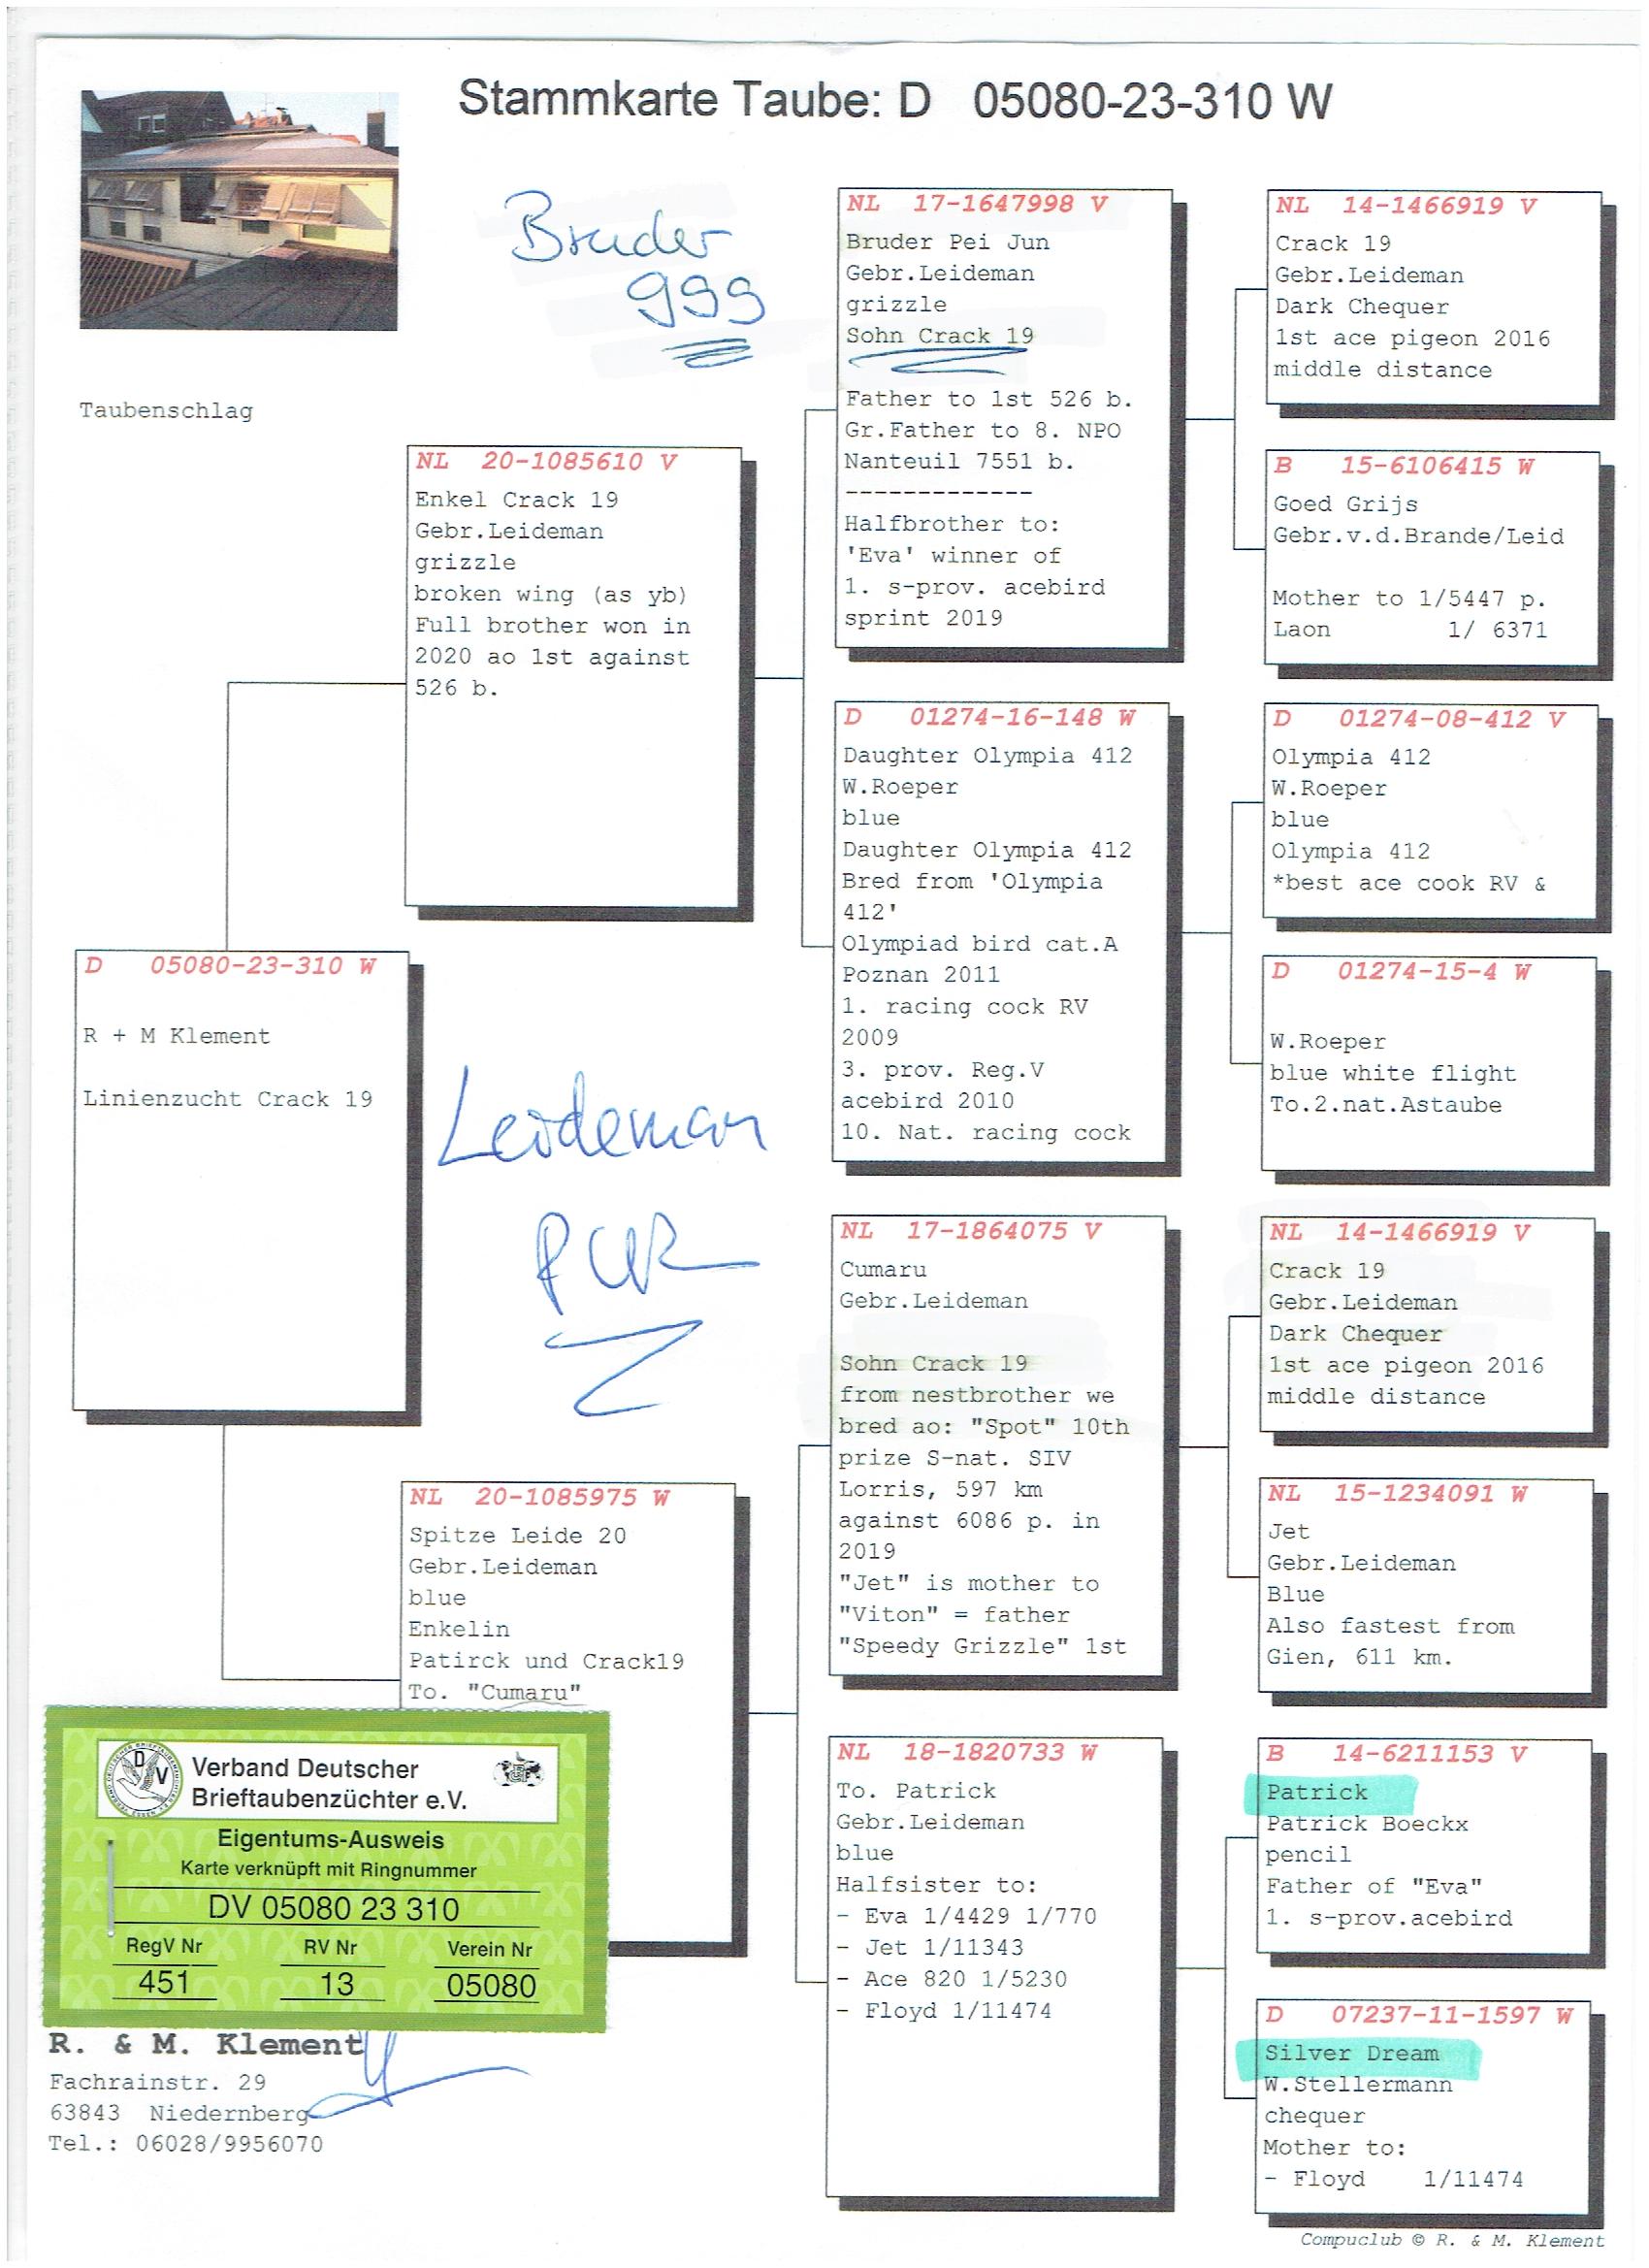 Stammkarte Taube: D 05080-23-310 W
Bruder
999
Taubenschlag
D 05080-23-310 W
R + M Klement
Linienzucht Crack 19
NL 20-1085610 V
Enkel Crack 19
Gebr.Leideman
grizzle
broken wing (as yb)
Full brother won in
2020 ao 1st against
526 b.
Leideman
PUR
NL 20-1085975 W
Spitze Leide 20
Gebr.Leideman
blue
Enkelin
Patirck und Crack19
To. "Cumaru"
NL 17-1647998 V
Bruder Pei Jun
Gebr.Leideman
grizzle
Sohn Crack 19
Father to 1st 526 b.
Gr.Father to 8. NPO
Nanteuil 7551 b.
-------------
Halfbrother to:
'Eva' winner of
1. s-prov. acebird
sprint 2019
D 01274-16-148 W
Daughter Olympia 412
W.Roeper
blue
Daughter Olympia 412
Bred from 'Olympia
412'
Olympiad bird cat.A
Poznan 2011
1. racing cock RV
2009
3. prov. Reg.V
acebird 2010
10. Nat. racing cock
NL 17-1864075 V
Cumaru
Gebr.Leideman
Sohn Crack 19
from nestbrother we
bred ao: "Spot" 10th
prize S-nat. SIV
Lorris, 597 km
against 6086 p. in
2019
"Jet" is mother to
"Viton" = father
"Speedy Grizzle" 1st
NL 18-1820733 W
To. Patrick
Gebr.Leideman
blue
Halfsister to:
- Eva 1/4429 1/770
- Jet 1/11343
- Ace 820 1/5230
- Floyd 1/11474
NL 14-1466919 V
Crack 19
Gebr.Leideman
Dark Chequer
1st ace pigeon 2016
middle distance
B 15-6106415 W
Goed Grijs
Gebr.v.d.Brande/Leid
Mother to 1/5447 p.
Laon 1/ 6371
D 01274-08-412 V
Olympia 412
W.Roeper
blue
Olympia 412
*best ace cook RV &
D 01274-15-4 W
W.Roeper
blue white flight
To.2.nat.Astaube
NL 14-1466919 V
Crack 19
Gebr.Leideman
Dark Chequer
1st ace pigeon 2016
middle distance
NL 15-1234091 W
Jet
Gebr.Leideman
Blue
Also fastest from
Gien, 611 km.
B 14-6211153 V
Patrick
Patrick Boeckx
pencil
Father of "Eva"
1. s-prov.acebird
D 07237-11-1597 W
Silver Dream
W.Stellermann
chequer
Mother to:
- Floyd 1/11474
Verband Deutscher
Brieftaubenzüchter e.V.
Eigentums-Ausweis
Karte verknüpft mit Ringnummer
DV 05080 23 310
RegV Nr RV Nr Verein Nr
451 13 05080
R. & M. Klement
Fachrainstr. 29
63843 Niedernberg
Tel.: 06028/9956070
Compuclub © R. & M. Klement